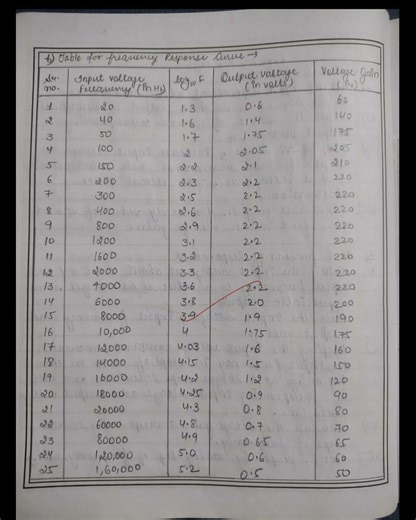 b) Table for frequency Response Curve →
Sr. no. Input voltage Frequency (in Hz) log₁₀ f Output voltage (in volts) Voltage Gain (Av)
1 20 1.3 0.6 60
2 40 1.6 1.4 140
3 50 1.7 1.75 175
4 100 2 2.05 205
5 150 2.2 2.1 210
6 200 2.3 2.2 220
7 300 2.5 2.2 220
8 400 2.6 2.2 220
9 800 2.9 2.2 220
10 1200 3.1 2.2 220
11 1600 3.2 2.2 220
12 2000 3.3 2.2 220
13. 4000 3.6 2.2 220
14 6000 3.8 2.0 200
15 8000 3.9 1.9 190
16 10,000 4 1.75 175
17 12000 4.03 1.6 160
18 14000 4.15 1.5 150
19 16000 4.2 1.2 120
20. 18000 4.25 0.9 90
21 20000 4.3 0.8 80
22 60000 4.8 0.7 70
23 80000 4.9 0.6.5 65
24 120,000 5.0 0.6 60
25 1,60,000 5.2 0.5 50